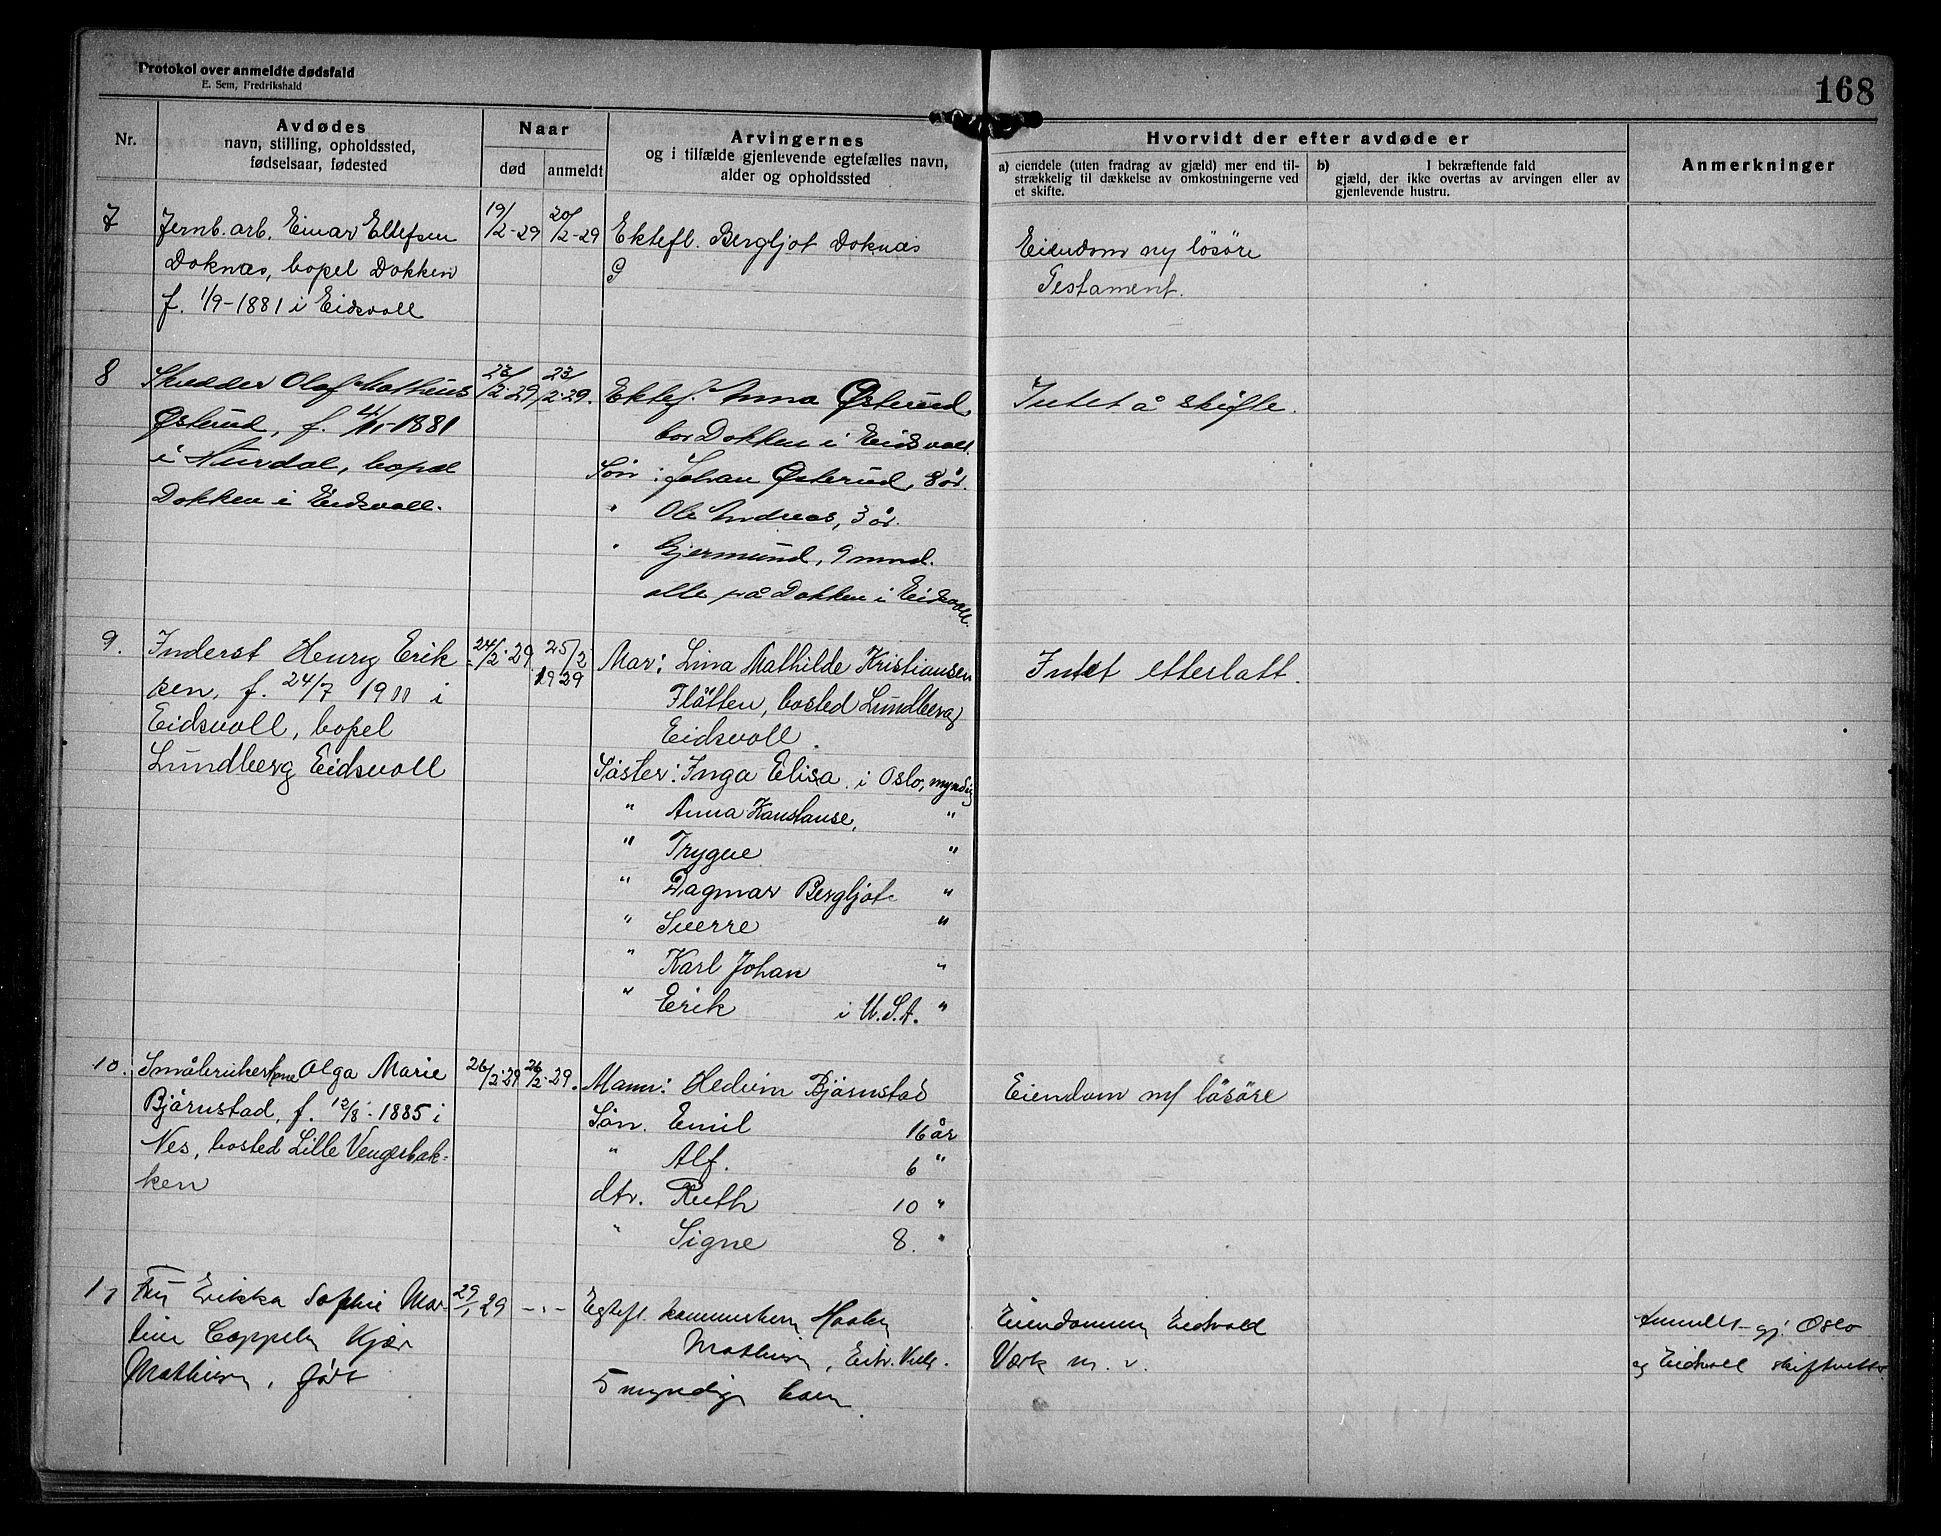 Protokol over anmeldte dødsfald
E. Sem, Fredrikshald
168
Nr.
Avdødes
navn, stilling, opholdssted,
fødselsaar, fødested
Naar
død
anmeldt
Arvingernes
og i tilfælde gjenlevende egtefælles navn,
alder og opholdssted
Hvorvidt der efter avdøde er
a) eiendele (uten fradrag av gjæld) mer end til-
strækkelig til dækkelse av omkostningerne ved
et skifte.
b) I bekræftende fald
gjæld, der ikke overtas av arvingen eller av
gjenlevende hustru.
Anmerkninger
7
Jernb. arb. Einar Ellefsen
Doknæs, bopel Dokken
f. 1/9-1881 i Eidsvoll
19/2-29
20/2-29
Ektefl. Bergljot Doknæs
Eiendom m/ løsøre
Testament.
8
Skredder Olaf Matheus
Østerud, f. 4/11-1881
i Hurdal, bopæl
Dokken i Eidsvoll.
23/2-29
23/2-29.
Ektef. Anna Østerud
bor Dokken i Eidsvoll.
Søn: Johan Østerud, 8 år.
" Ole Andreas, 3 år.
" Gjermund, 9 mnd.
alle på Dokken i Eidsvoll.
Intet å skifte.
9.
Inderst Henry Erik
sen, f. 24/7 1900 i
Eidsvoll, bopel
Lundberg Eidsvoll
24/2-29
25/2
1929
Mor: Lina Mathilde Kristiansen
Fløtten, bosted Lundberg
Eidsvoll.
Søster: Inga Elisa i Oslo, myndig
" Anna Konstanse, "
" Trygve "
" Dagmar Bergljot "
" Sverre "
" Karl Johan "
" Erik i U.S.A. "
Intet etterlatt.
10.
Småbrukerkone Olga Marie
Bjørnstad, f. 12/8-1885 i
Nes, bosted Lille Vengerbak-
ken
26/2-29
26/2-29.
Mann: Hedvin Bjørnstad
Søn. Emil 16 år
" Alf. 6 "
dtr. Ruth 10 "
" Signe 8. "
Eiendom m/ løsøre
11
Fru Erikka Sophie Mar-
tine Cappelen Kjær
Mathiesen, født
29/1 29
-"-
Egtefl. kammerherre Haaken
Mathiesen, Eidsv. Verk.
5 myndige barn
Eiendommen Eidsvold
Værk m. v.
Anmeldt gj. Oslo
og Eidsvoll skifterett